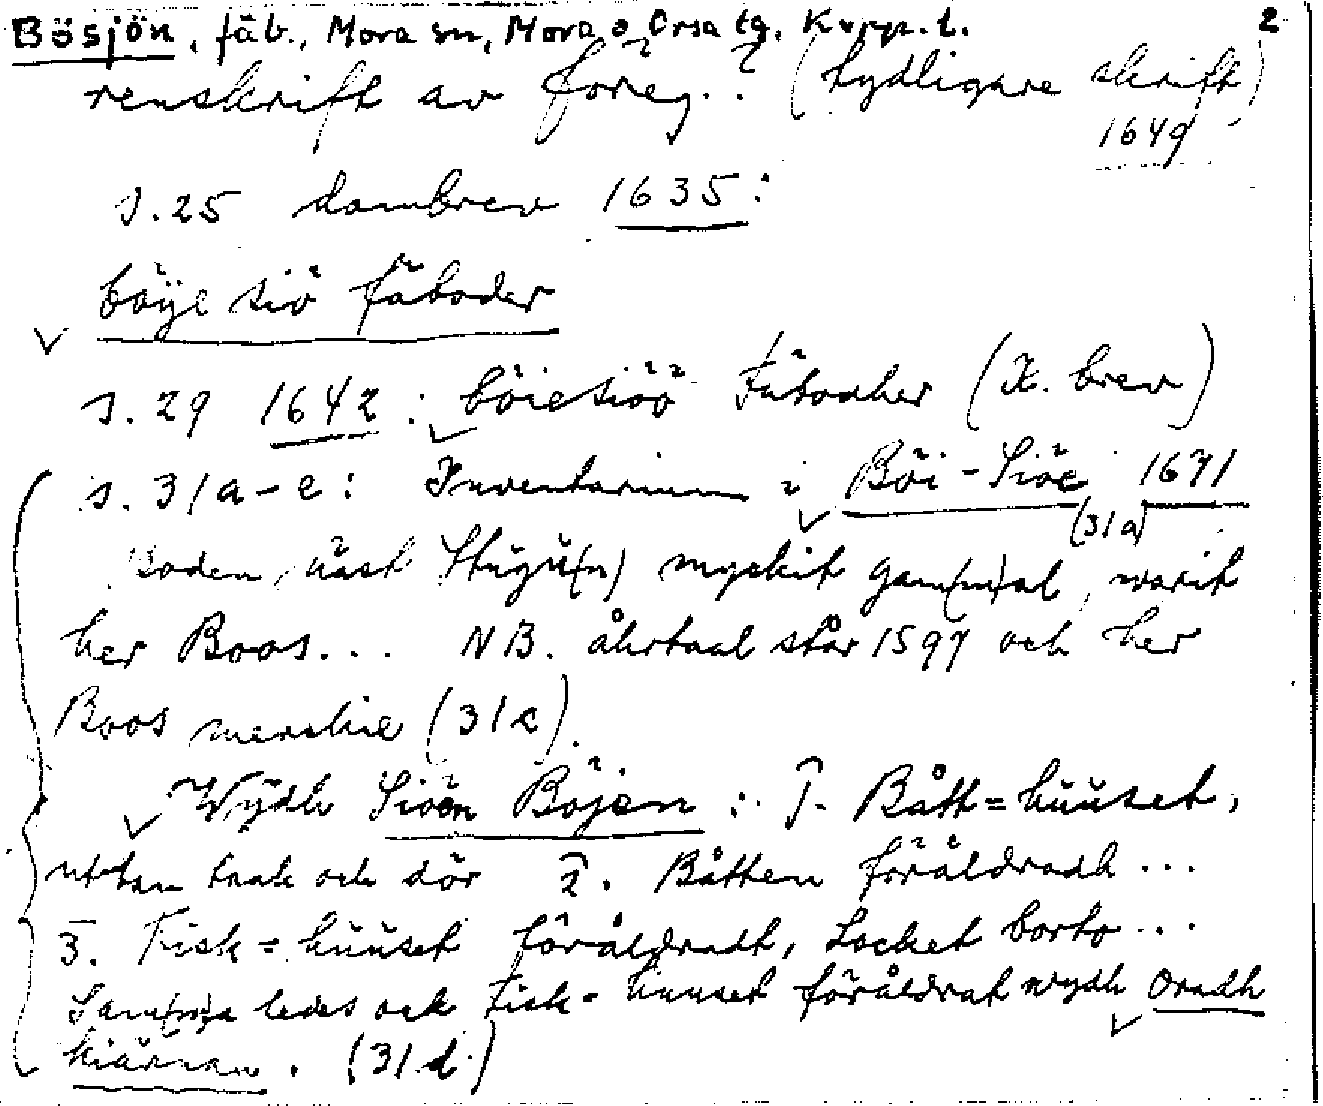 Bösjön, fäb., Mora sn, Mora o Orsa tg, Kopp. l. 2
renskrift av föreg.? (tydligare skrift)
1649
s. 25 dombrev 1635:
böÿe siö fäboder
s. 29 1642: böiesiöö Fäbodher (X. brev)
s. 31a-e: Inventarium i Böi-Siöe 1671
(31a)
Boden näst Stugu(n) myckit gam(m)al, warit
her Boos... NB. åhrtaal står 1597 och her
Boos merckie (31c).
Wÿdh Siöen Böjen: 1. Bått=huuset,
uttan taak och dör 2. Båtten föråldradh...
3. Fisk=huuset föråldradt, Locket borto...
Sam(m)a ledes ock Fisk-huuset föråldrat wydh Oradh
kiärnan. (31d)